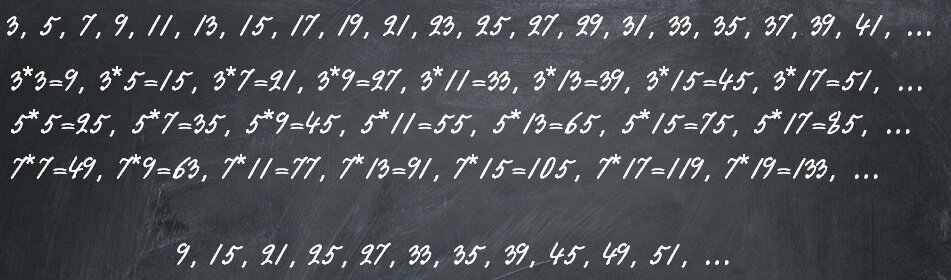 3, 5, 7, 9, 11, 13, 15, 17, 19, 21, 23, 25, 27, 29, 31, 33, 35, 37, 39, 41, ...
3*3=9, 3*5=15, 3*7=21, 3*9=27, 3*11=33, 3*13=39, 3*15=45, 3*17=51, ...
5*5=25, 5*7=35, 5*9=45, 5*11=55, 5*13=65, 5*15=75, 5*17=85, ...
7*7=49, 7*9=63, 7*11=77, 7*13=91, 7*15=105, 7*17=119, 7*19=133, ...
9, 15, 21, 25, 27, 33, 35, 39, 45, 49, 51, ...